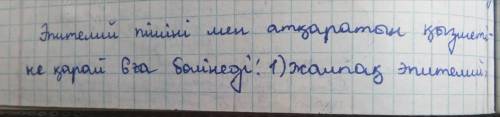 Эпителий пішіні мен атқаратын қызметі-
не қарай 6ға бөлінеді: 1) жалпақ эпителий.